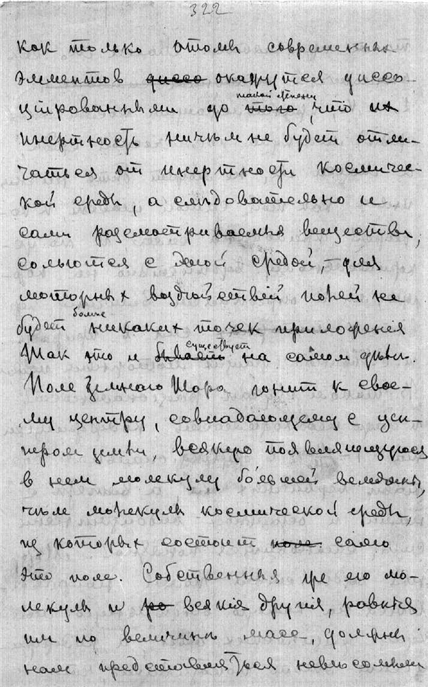 322
как только атомы современных
элементов диссо окажутся диссо-
такой степени
циированными до того, что их
инертность ничѣм не будет отли-
чаться от инертности космичес-
кой среды, а слѣдовательно и
сами разсмотриваемыя вещества,
сольются с этой средой – для
моторных воздѣйствий полей не
больше
будет никаких точек приложения
существует
Так это и бывает на самом дѣлѣ.
Поле Земного Шара гонит к свое-
му центру, совпадающему с цен-
тром земли, всякую появляющуюся
в нем молекулу большей величины,
чѣм молекулы космической среды,
из которых состоит поле само
это поле. Собственныя же его мо-
лекулы и ро всякія другія, равныя
им по величинѣ масс, должны
нам представляться невѣсомыми